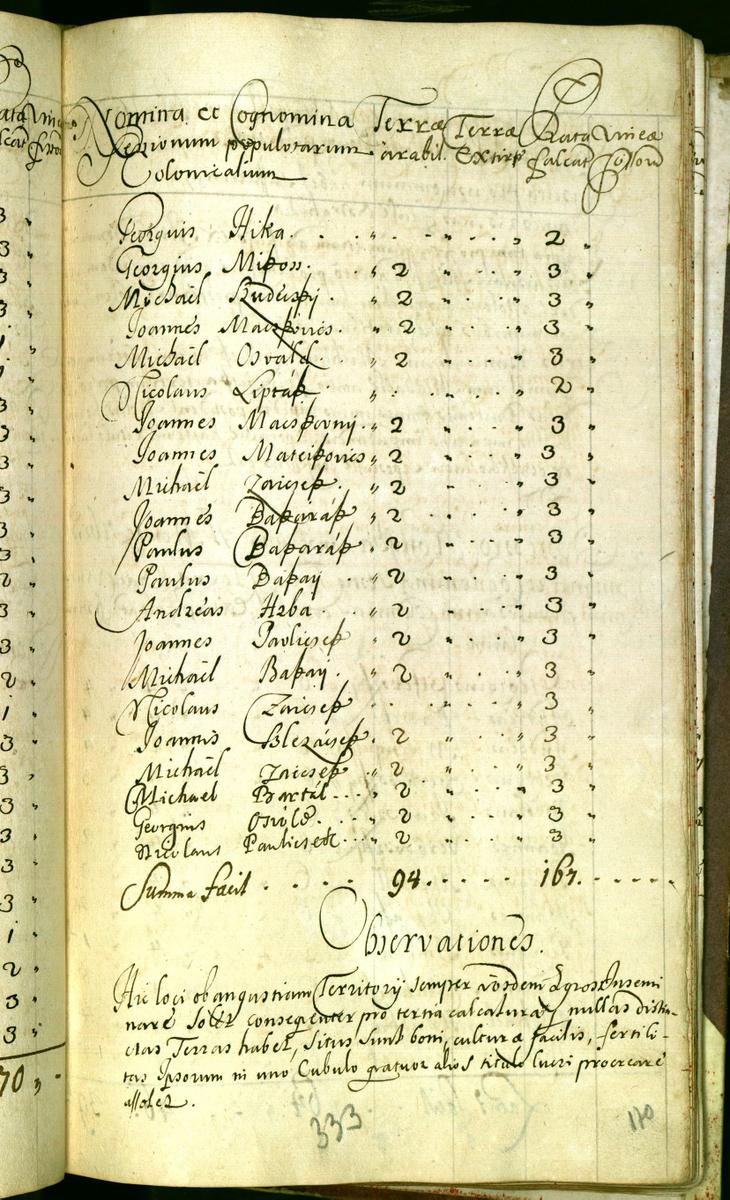 Nomina et Cognomina Terræ Terræ Prata Vineæ
Regionum populotarum arabil. Extirp falcat fossor
Colonicalium
Georguis Hika . . . „ . . „ . . „ 2 „
Georgius Mikos . „ 2 „ . . „ 3 „
Michaël „ 2 „ . . „ 3 „
Joannes „ 2 „ . . „ 3 „
Michaël Osvald . „ 2 „ . . „ 3 „
Nicolaus Lipták . „ . . „ . . „ 2 „
Joannes Macskovnij . „ 2 „ . . „ 3 „
Joannes Mateikovics „ 2 „ . . „ 3 „
Michaël Zaicsek . „ 2 „ . . „ 3 „
Joannes Bakarák „ 2 „ . . „ 3 „
Paulus Bakarák „ 2 „ . . „ 3 „
Paulus Bakaij . „ 2 „ . . „ 3 „
Andreas Hrba . „ 2 „ . . „ 3 „
Joannes Pavlicsek „ 2 „ . . „ 3 „
Michaël Bakaij . „ 2 „ . . „ 3 „
Nicolaus Zaicsek . . . . . . 3 „
Joannis Blezácsek . 2 „ „ 3 „
Michaël Zaicsek „ 2 „ . . „ 3 „
Michael Bartál . . . „ 2 „ . . „ 3 „
Georgius „ 2 „ . . „ 3 „
Nicolaus Paulicsek . . „ 2 „ . . „ 3 „
Summa facit . . . . 94 . . . . . 167 . . . . .
Observationes.
Hic loci ob angustiam Territorij semper eosdem Agros Insemi
nare solet consequenter pro tertia calcatura nullas distin-
ctas Terras habet, situs sunt boni, culturæ facilis, fertili-
tas Ipsorum in uno Cubulo qratuor alios titulo lucri procreare
assolet.
333
170